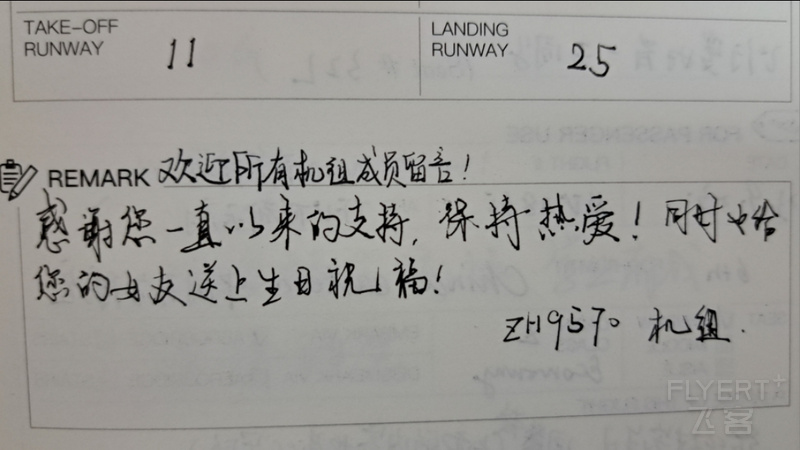 TAKE-OFF
RUNWAY
11
LANDING
RUNWAY
25
REMARK 欢迎所有机组成员留言！
感谢您一直以来的支持，保持热爱！同时也给
您的女友送上生日祝福！
ZH9570 机组.
FOR PASSENGER USE
FLYERT+
飞客